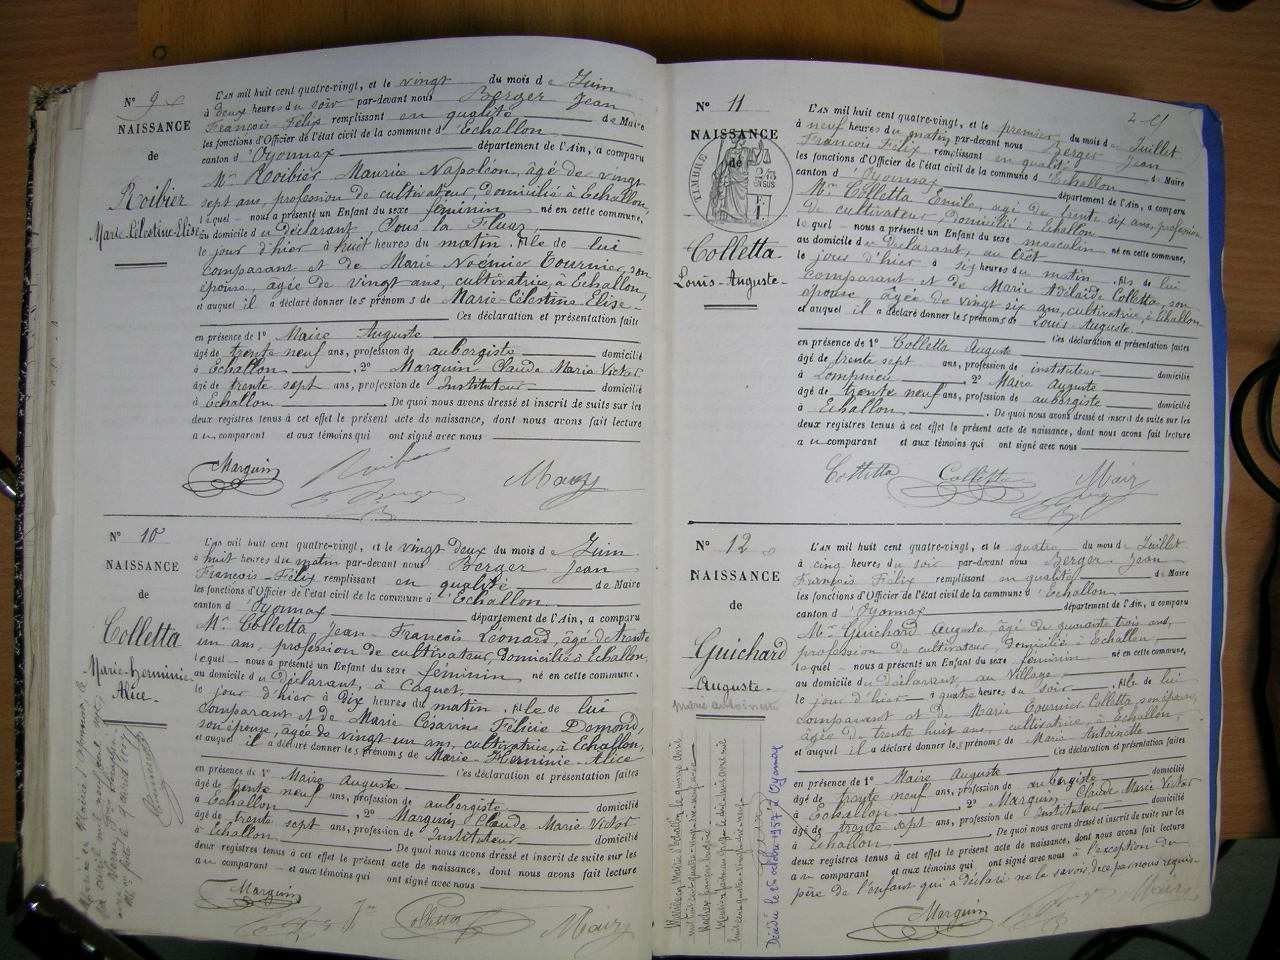 N° 9
NAISSANCE
de
Roibier
Marie-Célestine-Elise
L'AN mil huit cent quatre-vingt, et le vingt du mois de Juin
à deux heures du soir par-devant nous Berger Jean
François-Félix remplissant en qualité de Maire
les fonctions d'Officier de l'état civil de la commune d'Echallon
canton d'Oyonnax département de l'Ain, a comparu
Mr Roibier Maurice Napoléon, âgé de vingt
sept ans, profession de cultivateur, domicilié à Echallon,
lequel nous a présenté un Enfant du sexe féminin né en cette commune,
au domicile du Déclarant, Sous la
le jour d'hier à huit heures du matin, fille de lui
comparant et de Marie Noémie Tournier, son
épouse, âgée de vingt ans, cultivatrice, à Echallon,
et auquel il a déclaré donner les prénoms de Marie-Célestine Elise
Ces déclaration et présentation faites
en présence de 1° Maire Auguste
âgé de trente neuf ans, profession de aubergiste domicilié
à Echallon, 2° Marquin Claude Marie Victor
âgé de trente sept ans, profession de Instituteur domicilié
à Echallon. De quoi nous avons dressé et inscrit de suite sur les
deux registres tenus à cet effet le présent acte de naissance, dont nous avons fait lecture
au comparant et aux témoins qui ont signé avec nous
Marquin Maire
N° 10
NAISSANCE
de
Colletta
Marie-Herminie-
Alice
L'AN mil huit cent quatre-vingt, et le vingt deux du mois de Juin
à huit heures du matin par-devant nous Berger Jean
François-Félix remplissant en qualité de Maire
les fonctions d'Officier de l'état civil de la commune d'Echallon
canton d'Oyonnax département de l'Ain, a comparu
Mr Colletta Jean-François Léonard âgé de trente
un ans, profession de cultivateur, domicilié à Echallon,
lequel nous a présenté un Enfant du sexe féminin né en cette commune,
au domicile du Déclarant, à
le jour d'hier à Dix heures du matin, fille de lui
comparant et de Marie Félicie
son épouse, âgée de vingt un ans, cultivatrice, à Echallon,
et auquel il a déclaré donner les prénoms de Marie-Herminie-Alice
Ces déclaration et présentation faites
en présence de 1° Maire Auguste
âgé de trente neuf ans, profession de aubergiste domicilié
à Echallon, 2° Marquin Claude Marie Victor
âgé de trente sept ans, profession de Instituteur domicilié
à Echallon. De quoi nous avons dressé et inscrit de suite sur les
deux registres tenus à cet effet le présent acte de naissance, dont nous avons fait lecture
au comparant et aux témoins qui ont signé avec nous
Marquin Colletta Maire
N° 11
NAISSANCE
de
TIMBRE
Colletta
Louis-Auguste-
L'AN mil huit cent quatre-vingt, et le premier du mois de Juillet
à neuf heures du matin par-devant nous Berger Jean
François Félix remplissant en qualité de Maire
les fonctions d'Officier de l'état civil de la commune d'Echallon
canton d'Oyonnax département de l'Ain, a comparu
Mr Colletta Emile, âgé de trente six ans, profession
de cultivateur Domicilié à Echallon
lequel nous a présenté un Enfant du sexe masculin né en cette commune,
au domicile du Déclarant, au Crêt
le jour d'hier à six heures du matin, fils de lui
comparant et de Marie Adélaïde Colletta, son
épouse âgée de vingt six ans, cultivatrice, à Echallon
et auquel il a déclaré donner les prénoms de Louis-Auguste
Ces déclaration et présentation faites
en présence de 1° Colletta Auguste
âgé de trente sept ans, profession de instituteur domicilié
à Lompnieu, 2° Maire Auguste
âgé de trente neuf ans, profession de aubergiste domicilié
à Echallon. De quoi nous avons dressé et inscrit de suite sur les
deux registres tenus à cet effet le présent acte de naissance, dont nous avons fait lecture
au comparant et aux témoins qui ont signé avec nous
Colletta Colletta Maire
N° 12
NAISSANCE
de
Guichard
Auguste-
marie antoinette
L'AN mil huit cent quatre-vingt, et le quatre du mois de Juillet
à cinq heures du soir par-devant nous Berger Jean
François Félix remplissant en qualité de Maire
les fonctions d'Officier de l'état civil de la commune d'Echallon
canton d'Oyonnax département de l'Ain, a comparu
Mr Guichard Auguste, âgé de quarante trois ans,
profession de cultivateur Domicilié à Echallon,
lequel nous a présenté un Enfant du sexe féminin né en cette commune,
au domicile du Déclarant au Village
le jour d'hier à quatre heures du soir, fille de lui
comparant et de Marie Tournier Colletta, son épouse,
âgée de trente huit ans, cultivatrice, à Echallon,
et auquel il a déclaré donner les prénoms de Marie Antoinette
Ces déclaration et présentation faites
en présence de 1° Maire Auguste
âgé de trente neuf ans, profession de aubergiste domicilié
à Echallon, 2° Marquin Claude Marie Victor
âgé de trente sept ans, profession de Instituteur domicilié
à Echallon. De quoi nous avons dressé et inscrit de suite sur les
deux registres tenus à cet effet le présent acte de naissance, dont nous avons fait lecture
au comparant et aux témoins qui ont signé avec nous à l'exception du
père de l'enfant qui a déclaré ne le savoir, de ce par nous requis
Marquin Maire
Décédée le octobre 1957 à Oyonnax